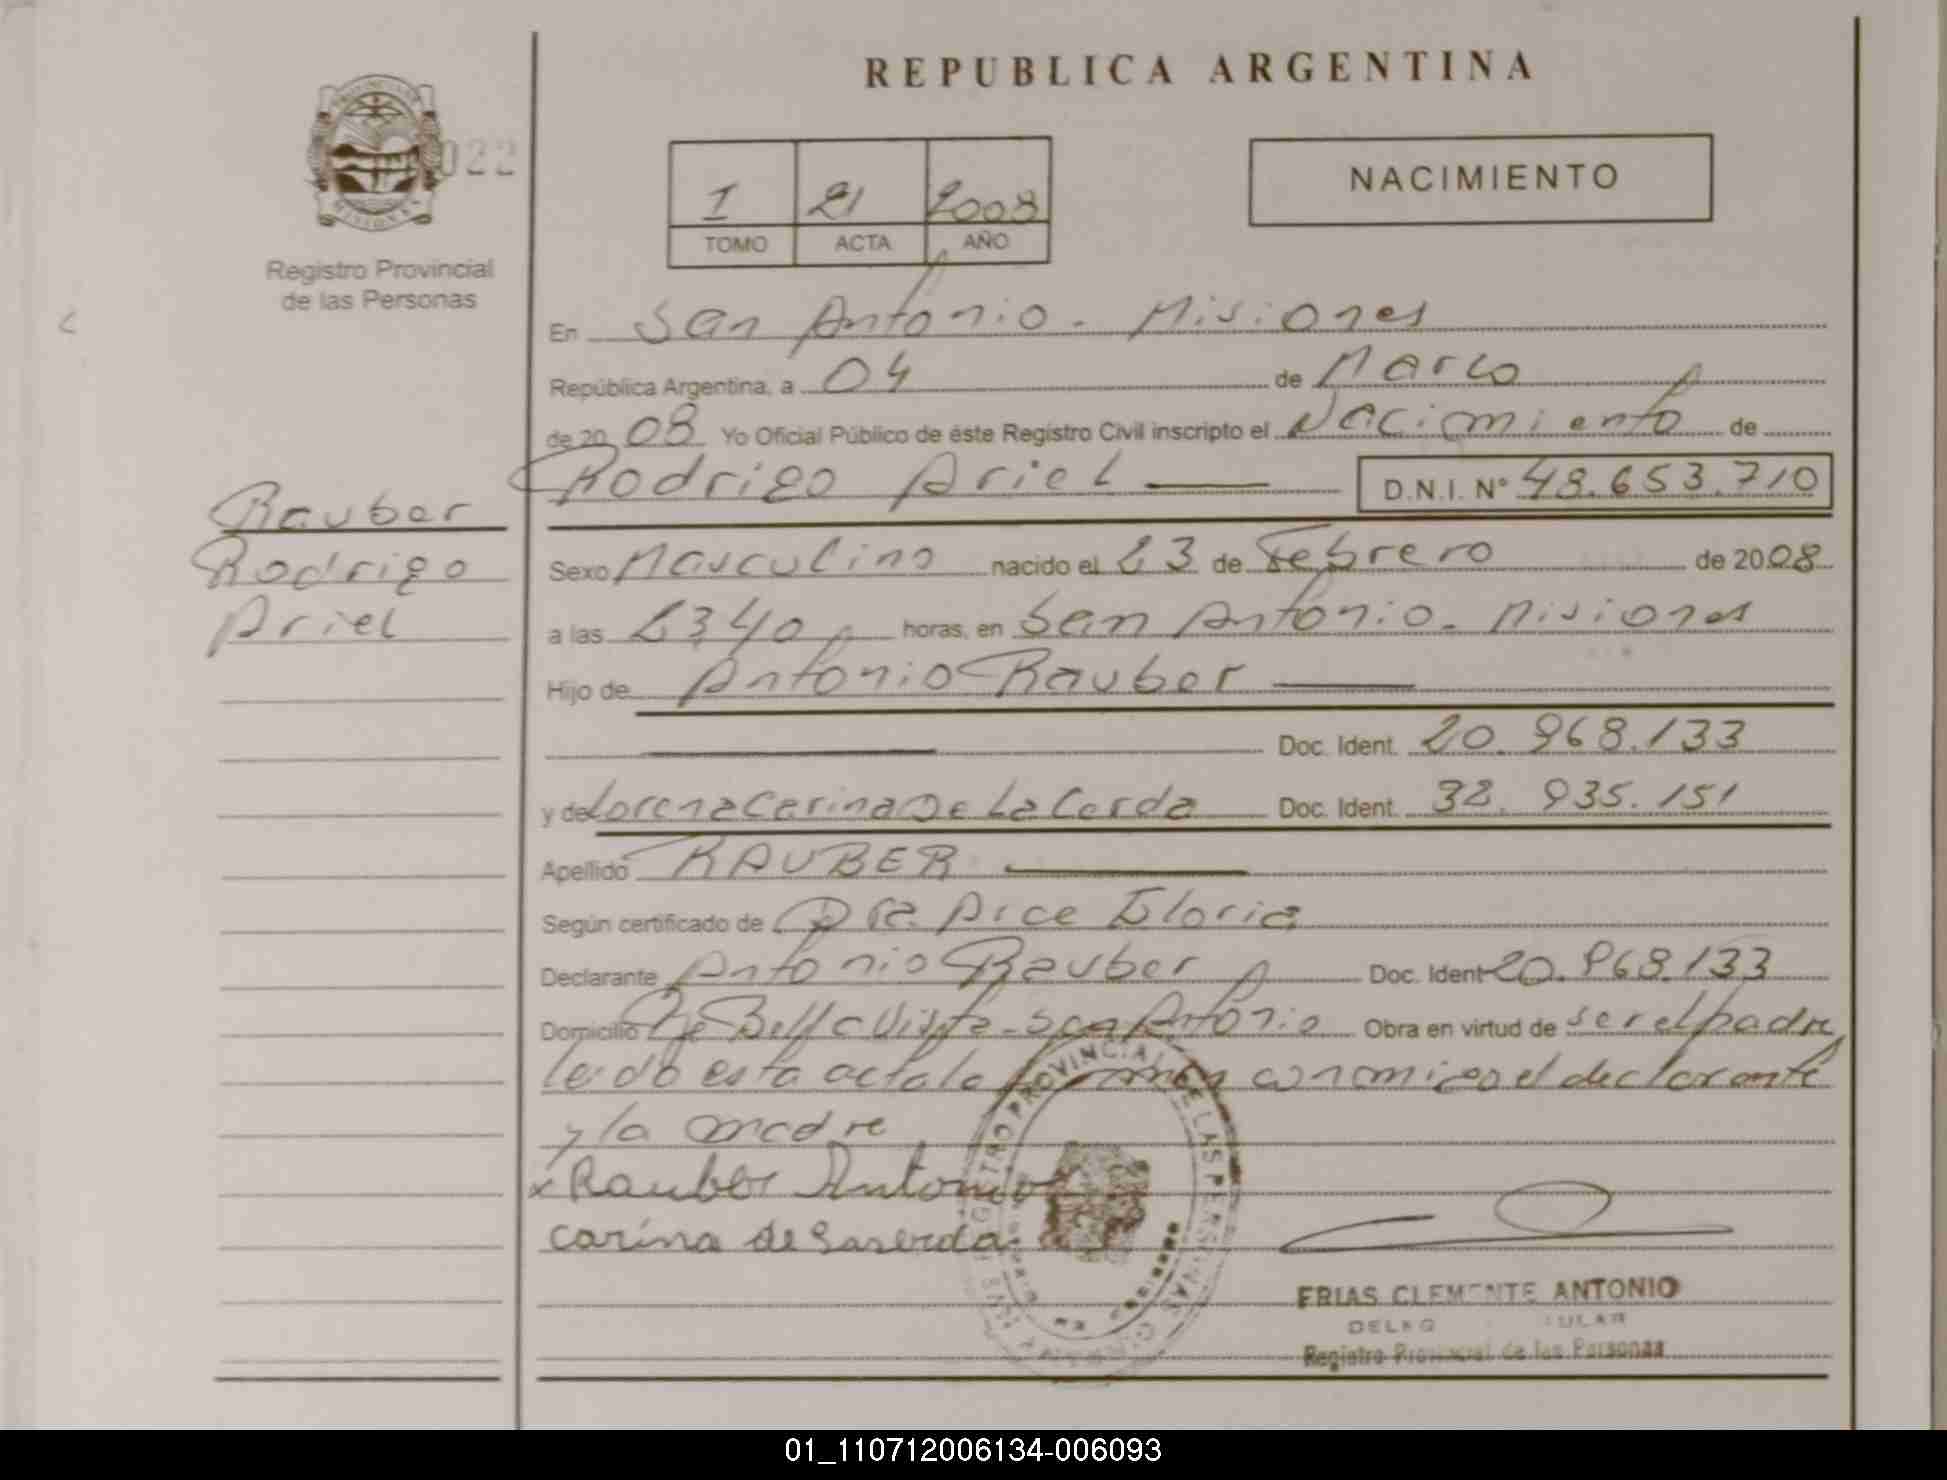 REPUBLICA ARGENTINA
022
Registro Provincial
de las Personas
1 21 2008
TOMO ACTA AÑO
NACIMIENTO
En San Antonio - Misiones
República Argentina, a 04 de Marzo
de 20 08 Yo Oficial Público de éste Registro Civil inscripto el Nacimiento de
Rodrigo Ariel D.N.I. N° 48.653.710
Rauber
Rodrigo
Ariel
Sexo Masculino nacido el 23 de Febrero de 2008
a las 23,40 horas, en San Antonio - Misiones
Hijo de Antonio Rauber
Doc. Ident. 20.968.133
y de Lorena Carina De La Cerda Doc. Ident. 32.935.151
Apellido RAUBER
Según certificado de Dra Arce Gloria
Declarante Antonio Rauber Doc. Ident 20.968.133
Domicilio Bella Vista - San Antonio Obra en virtud de ser el padre
leido esta acta la firman conmigo el declarante
y la madre
x Rauber Antonio
carina de Laserda
REGISTRO PROVINCIAL DE LAS PERSONAS
FRIAS CLEMENTE ANTONIO
Registro Provincial de las Personas
01_110712006134-006093